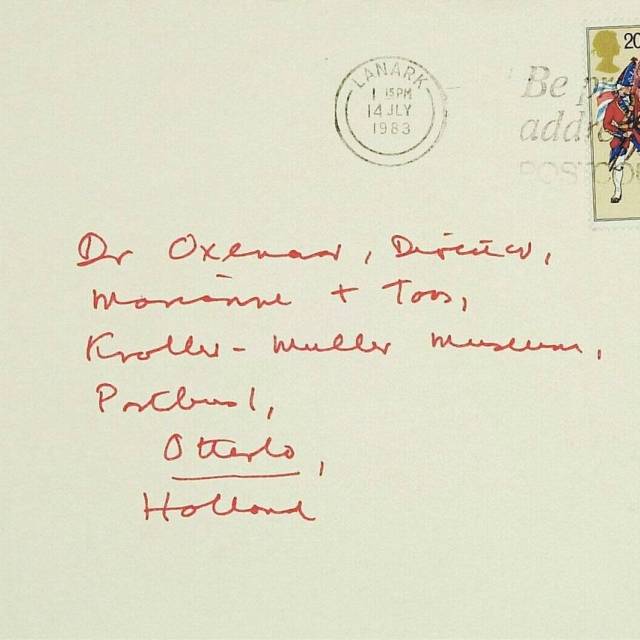 LANARK
1 15PM
14 JLY
1983
20
Be pr
addre
POSTCO
Dr Oxenaar, Director,
Marianne + Toos,
Kroller-Muller Museum,
Postbus 1,
Otterlo,
Holland